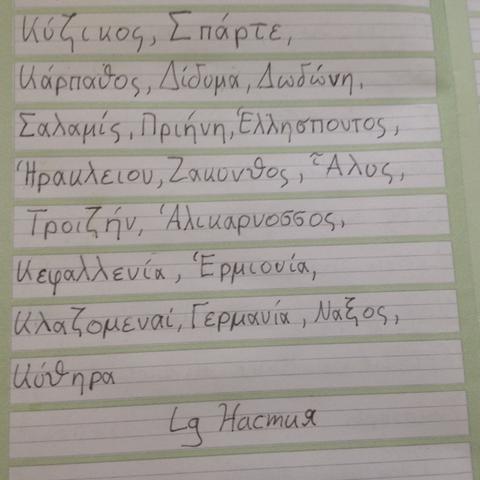 Κύζικος, Σπάρτε,
Κάρπαθος, Δίδυμα, Δωδώνη,
Σαλαμίς, Πριήνη, Ἑλλησποντος,
Ἡρακλειον, Ζακυνθος, Ἅλυς,
Τροιζήν, Ἁλικαρνοσσος,
Κεφαλλενία, Ἑρμιονία,
Κλαζομεναί, Γερμανία, Ναξος,
Κύθηρα
Lg Настия